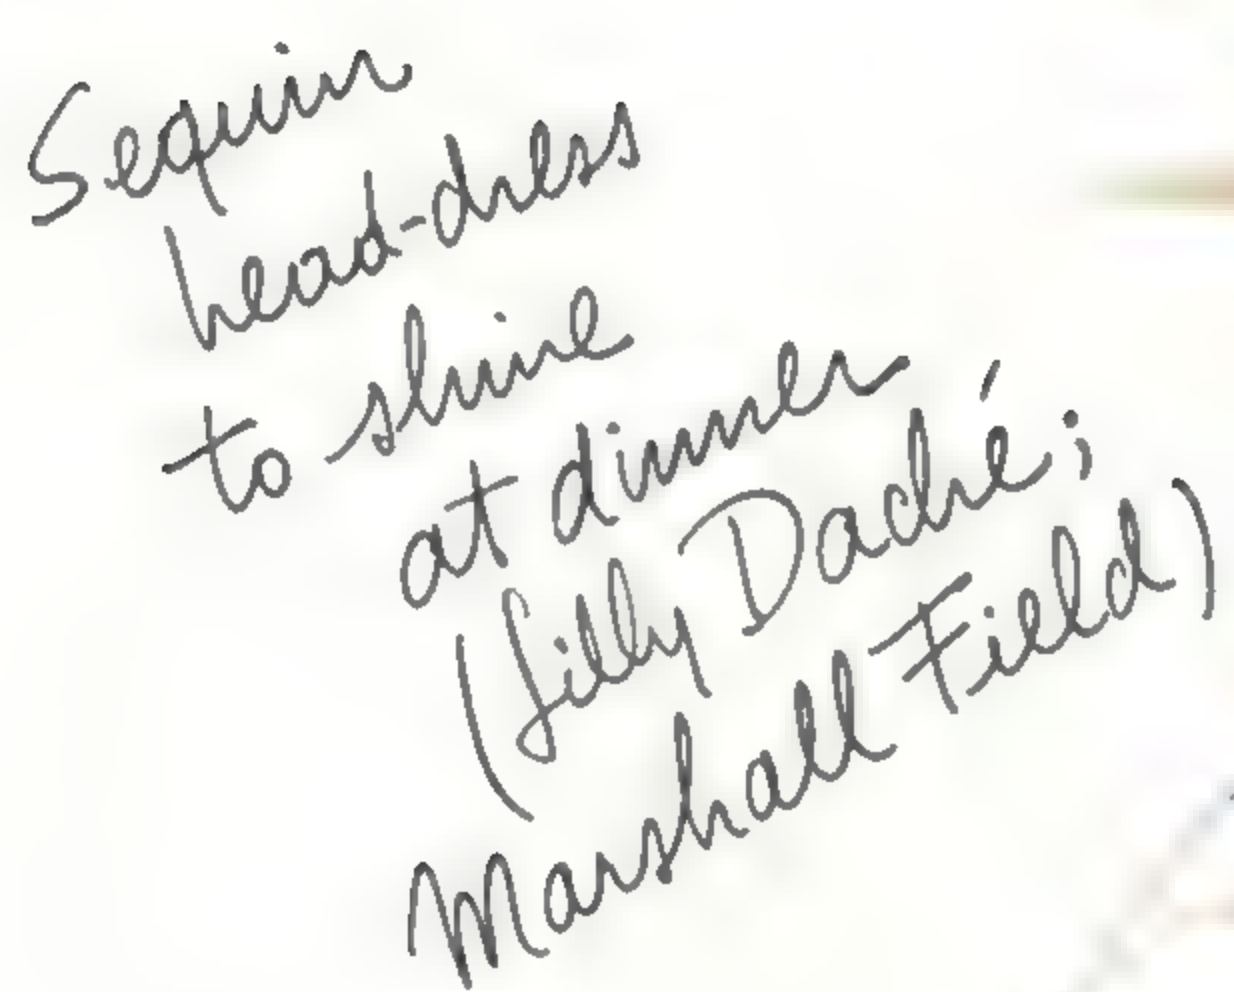 Sequin
head-dress
to shine
at dinner
(Lilly Daché;
Marshall Field)